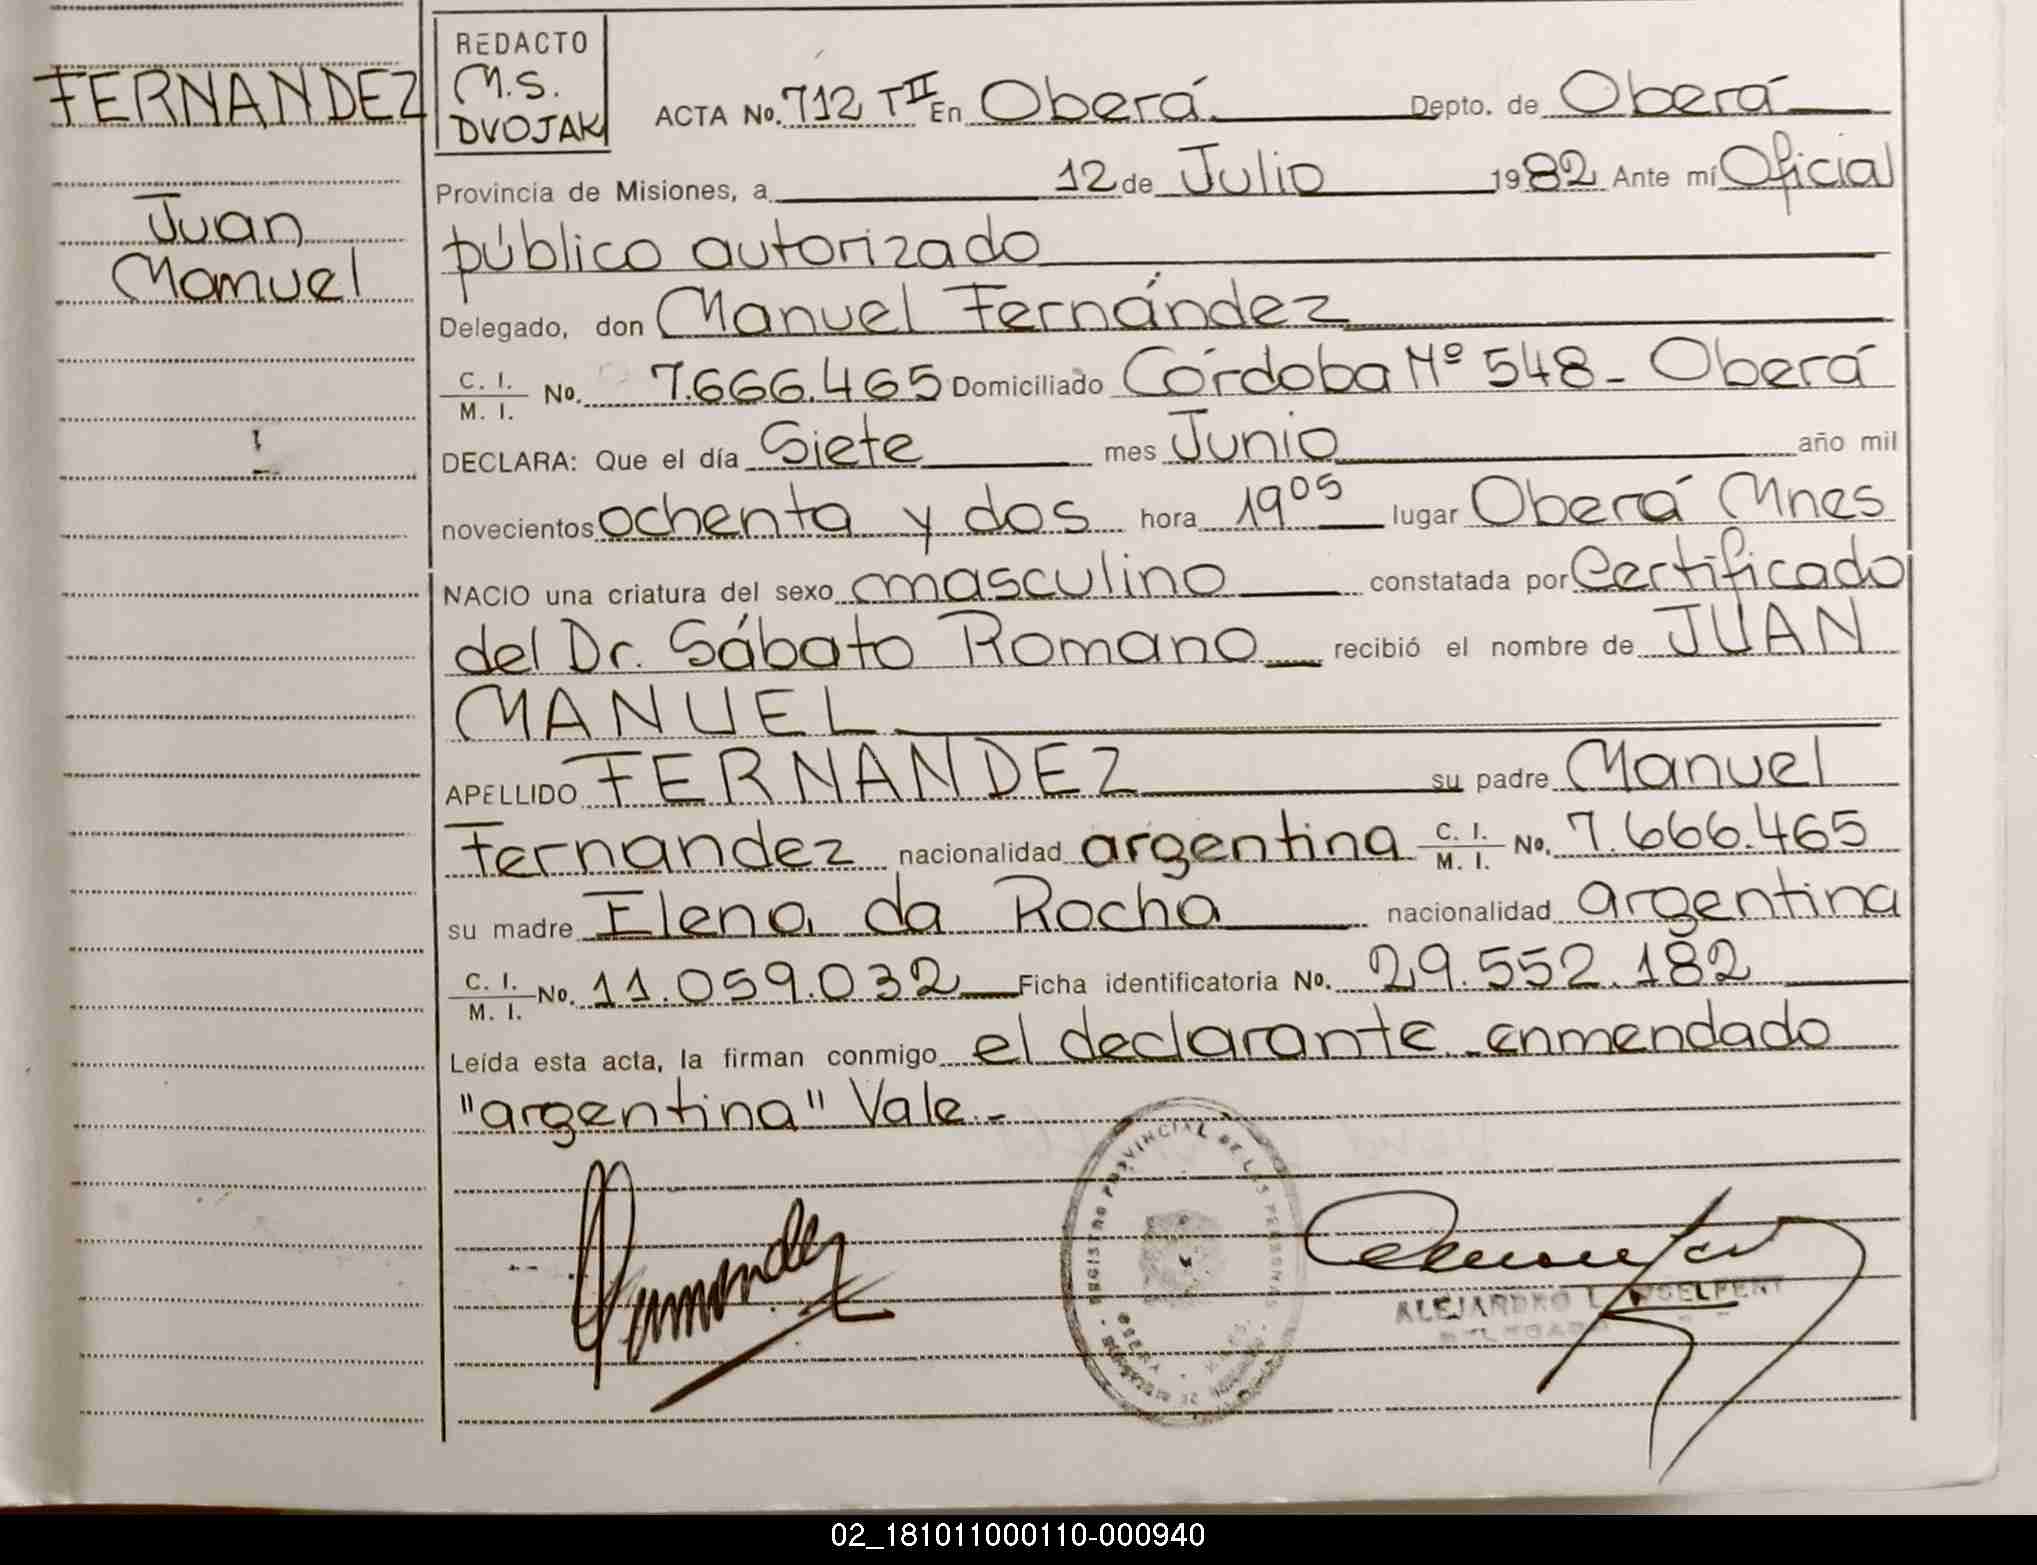 FERNANDEZ
Juan
Manuel
REDACTO
M.S.
DVOJAK
ACTA No. 712 TII En Oberá Depto. de Oberá
Provincia de Misiones, a 12 de Julio 1982 Ante mí Oficial
público autorizado
Delegado, don Manuel Fernández
C. I. / M. I. No. 7.666.465 Domiciliado Córdoba Nº 548 - Oberá
DECLARA: Que el día Siete mes Junio año mil
novecientos ochenta y dos hora 19 05 lugar Oberá Mnes
NACIO una criatura del sexo masculino constatada por Certificado
del Dr. Sábato Romano recibió el nombre de JUAN
MANUEL
APELLIDO FERNANDEZ su padre Manuel
Fernandez nacionalidad argentina C. I. / M. I. No. 7.666.465
su madre Elena da Rocha nacionalidad argentina
C. I. / M. I. No. 11.059.032 Ficha identificatoria No. 29.552.182
Leída esta acta, la firman conmigo el declarante - enmendado
"argentina" Vale.-
Fernandez
REGISTRO PROVINCIAL DE LAS PERSONAS
OBERA
ALEJANDRO
02_181011000110-000940